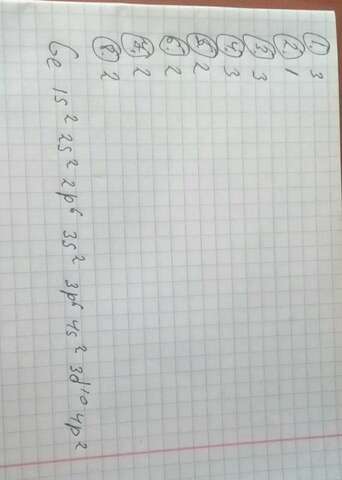 1. 3
2. 1
3. 3
4. 3
5. 2
6. 2
7. 2
8. 2
Ge 1s² 2s² 2p⁶ 3s² 3p⁶ 4s² 3d¹⁰ 4p²